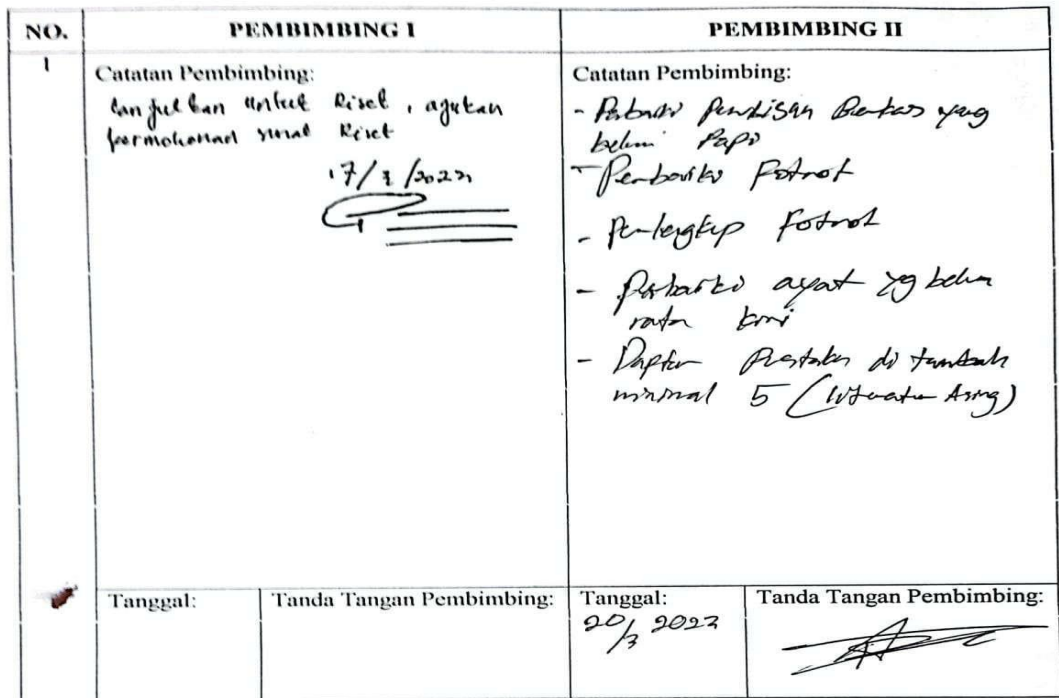 NO.
PEMBIMBING I
PEMBIMBING II
1
Catatan Pembimbing:
Lanjutkan untuk Riset, ajukan
permohonan surat Riset
17/3/2022
Catatan Pembimbing:
- Perbaiki Penulisan Berkas yang
belum Rapi
- Perbaiki Fotnot
- Perlengkap Fotnot
- Perbaiki ayat yg belum
rata kiri
- Daptar Pustaka di tambah
minimal 5 (Literatur Asing)
Tanggal:
Tanda Tangan Pembimbing:
Tanggal:
20/3 2022
Tanda Tangan Pembimbing: